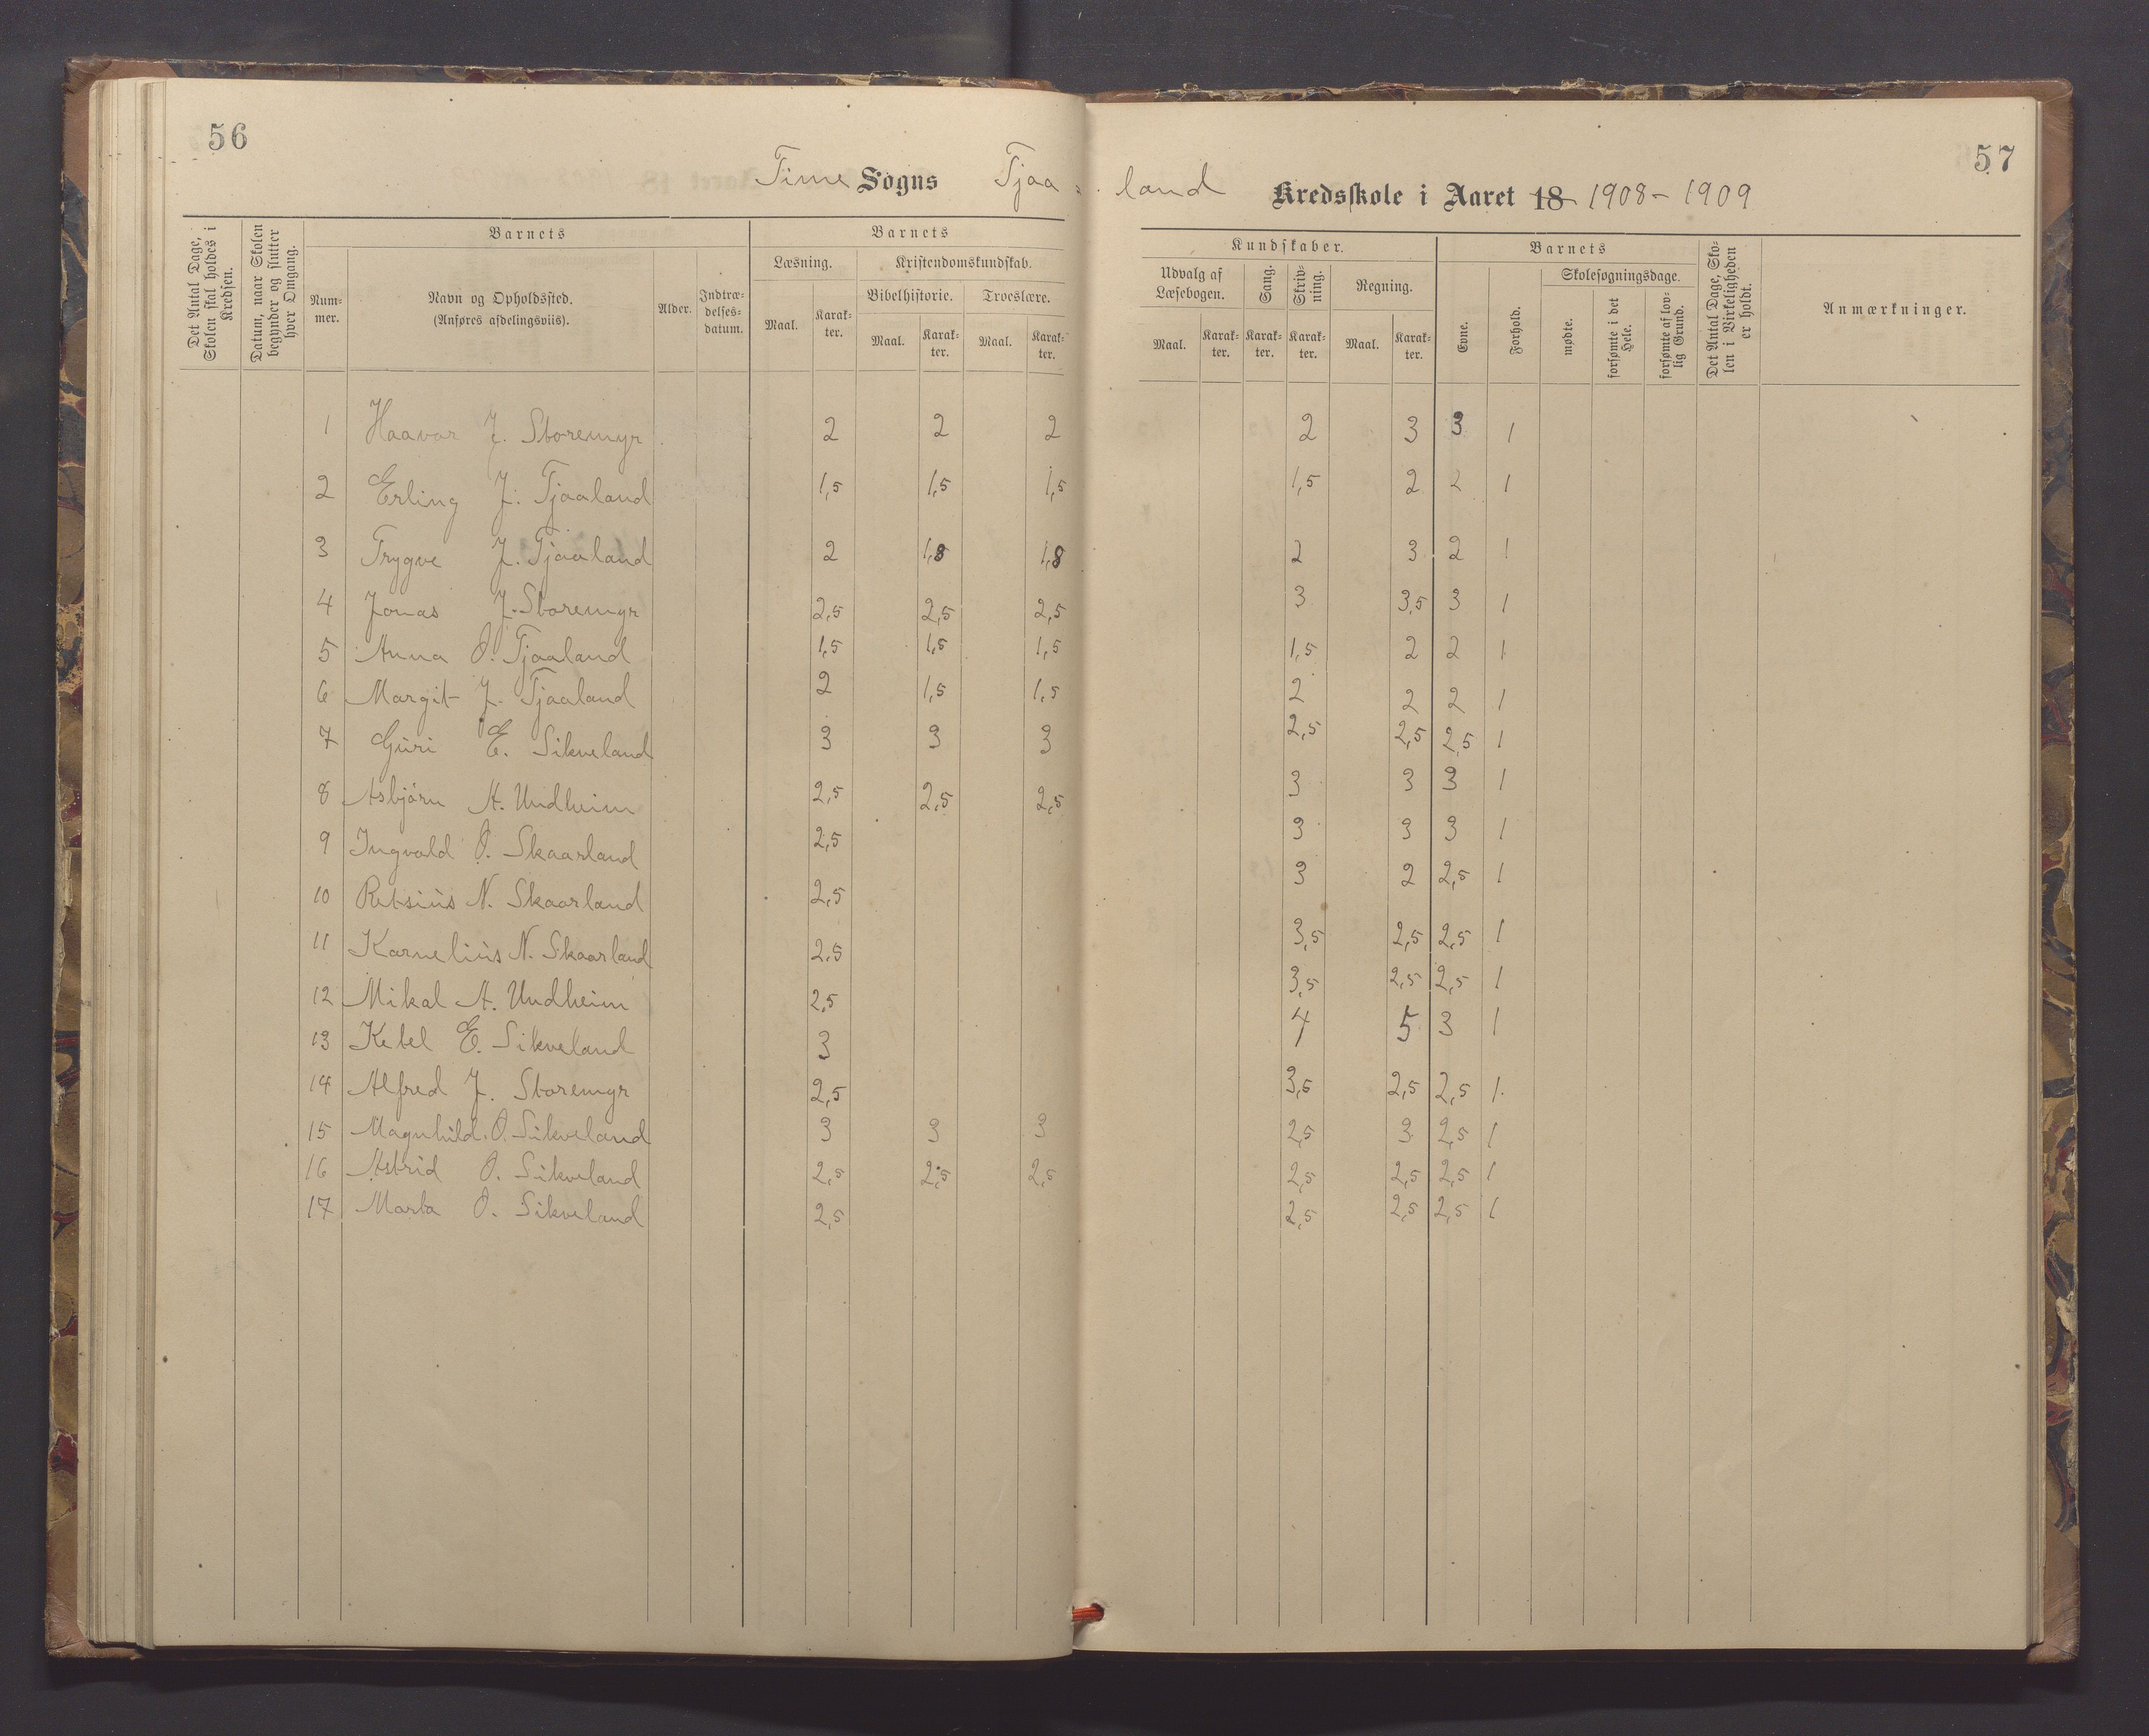 56
57
Time Sogns Tjaa- land Kredsskole i Aaret 18 1908-1909
Det Antal Dage, Skolen skal holdes i Kredsen.
Datum, naar Skolen begynder og slutter hver Omgang.
Barnets
Barnets
Kundskaber.
Barnets
Det Antal Dage, Skolen i Virkeligheden er holdt.
Anmærkninger.
Nummer.
Navn og Opholdssted.
(Anføres afdelingsviis).
Alder.
Indtrædelsesdatum.
Læsning.
Kristendomskundskab.
Bibelhistorie.
Troeslære.
Maal.
Karakter.
Maal.
Karakter.
Maal.
Karakter.
Udvalg af Læsebogen.
Sang.
Skrivning.
Regning.
Maal.
Karakter.
Karakter.
Karakter.
Maal.
Karakter.
Evne.
Forhold.
Skolesøgningsdage.
mødte.
forsømte i det Hele.
forsømte af lovlig Grund.
1 Haavar J. Storemyr 2 2 2 2 3 3 1
2 Erling J. Tjaaland 1,5 1,5 1,5 1,5 2 2 1
3 Trygve J. Tjaaland 2 1,8 1,8 2 3 2 1
4 Jonas J. Storemyr 2,5 2,5 2,5 3 3,5 3 1
5 Anna O. Tjaaland 1,5 1,5 1,5 1,5 2 2 1
6 Margit J. Tjaaland 2 1,5 1,5 2 2 2 1
7 Guri E. Sikveland 3 3 3 2,5 2,5 2,5 1
8 Asbjørn A. Undheim 2,5 2,5 2,5 3 3 3 1
9 Ingvald O. Skaarland 2,5 3 3 3 1
10 Retsius N. Skaarland 2,5 3 2 2,5 1
11 Karnelius N. Skaarland 2,5 3,5 2,5 2,5 1
12 Mikal A. Undheim 2,5 3,5 2,5 2,5 1
13 Ketel E. Sikveland 3 4 5 3 1
14 Alfred J. Storemyr 2,5 3,5 2,5 2,5 1.
15 Magnhild. O. Sikveland 3 3 3 2,5 3 2,5 1
16 Astrid O. Sikveland 2,5 2,5 2,5 2,5 2,5 2,5 1
17 Marta O. Sikveland 2,5 2,5 2,5 2,5 1